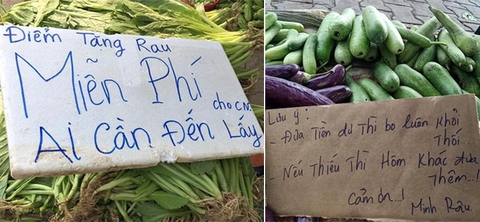 Điểm Tặng Rau
Miễn Phí
cho cm
Ai Cần Đến Lấy
Lưu ý:
- Đưa Tiền dư Thì bo luôn khỏi
Thối
- Nếu Thiếu Thì Hôm Khác đưa
Thêm...!
Cảm ơn...!
Minh Râu